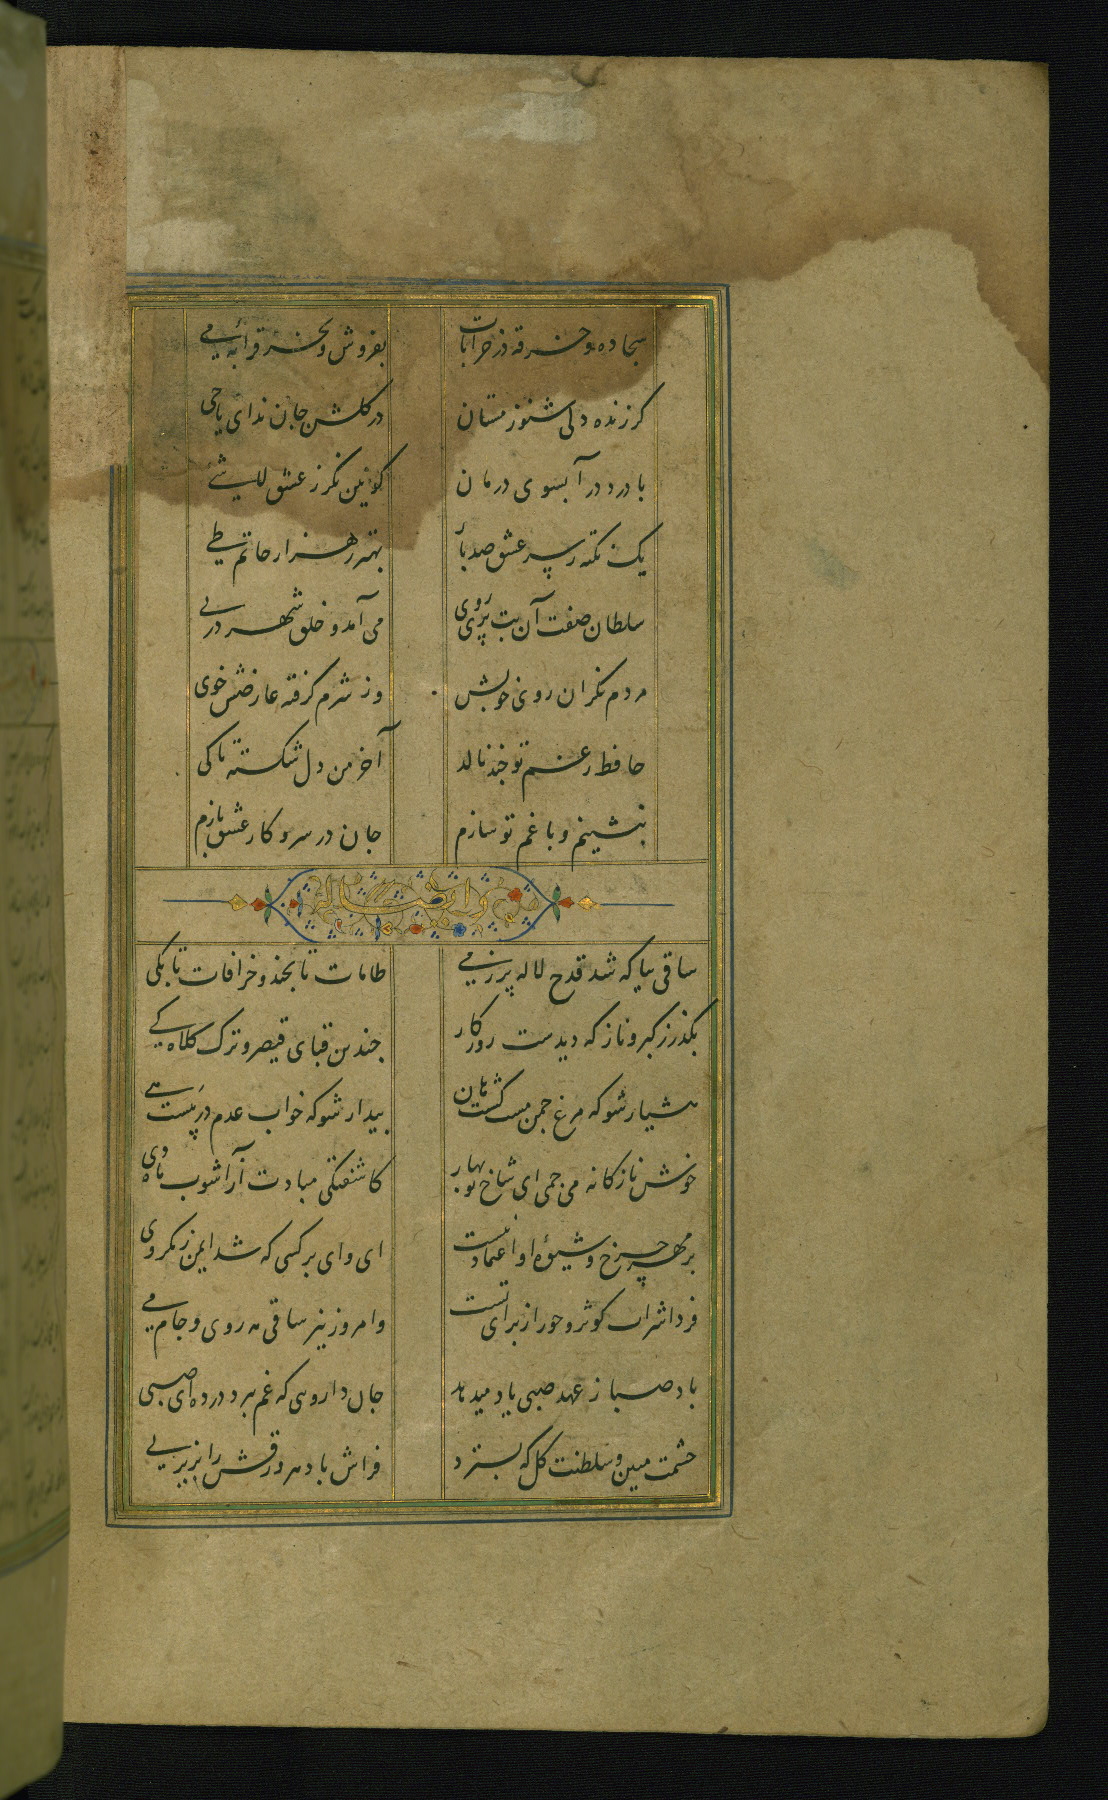 سجاده و خرقه در خرابات بفروش و بخر قرابه می
گر زنده دلی شنو ز مستان در گلشن جان ندای یا حی
با درد در آ بسوی درمان کونین نگر ز عشق لاشی
یک نکته ز سر عشق صد بار بهتر ز هزار حاتم طی
سلطان صفت آن بت پری روی می آمد و خلق شهر در پی
مردم نگران روی خوبش وز شرم گرفته عارضش خوی
حافظ ز غم تو چند نالد آخر من دل شکسته تا کی
بنشینم و با غم تو سازم جان در سر و کار عشق بازم
و ایضا له
ساقی بیا که شد قدح لاله پر ز می طامات تا بچند و خرافات تا بکی
بگذر ز کبر و ناز که دیدست روزگار چندین قبای قیصر و ترک کلاه کی
هشیار شو که مرغ چمن مست گشت هان بیدار شو که خواب عدم در پیست هی
خوش نازکانه می چمی ای شاخ نوبهار کاشفتگی مبادت از آشوب باد دی
بر مهر چرخ و شیوه او اعتماد نیست ای وای بر کسی که شد ایمن ز مکر وی
فردا شراب کوثر و حور از برای تست و امروز نیز ساقی مه روی و جام می
باد صبا ز عهد صبی یاد میدهد جان دارویی که غم ببرد در ده ای صبی
حشمت مبین و سلطنت گل که بسترد فراش باد هر ورقش را بزیر پی